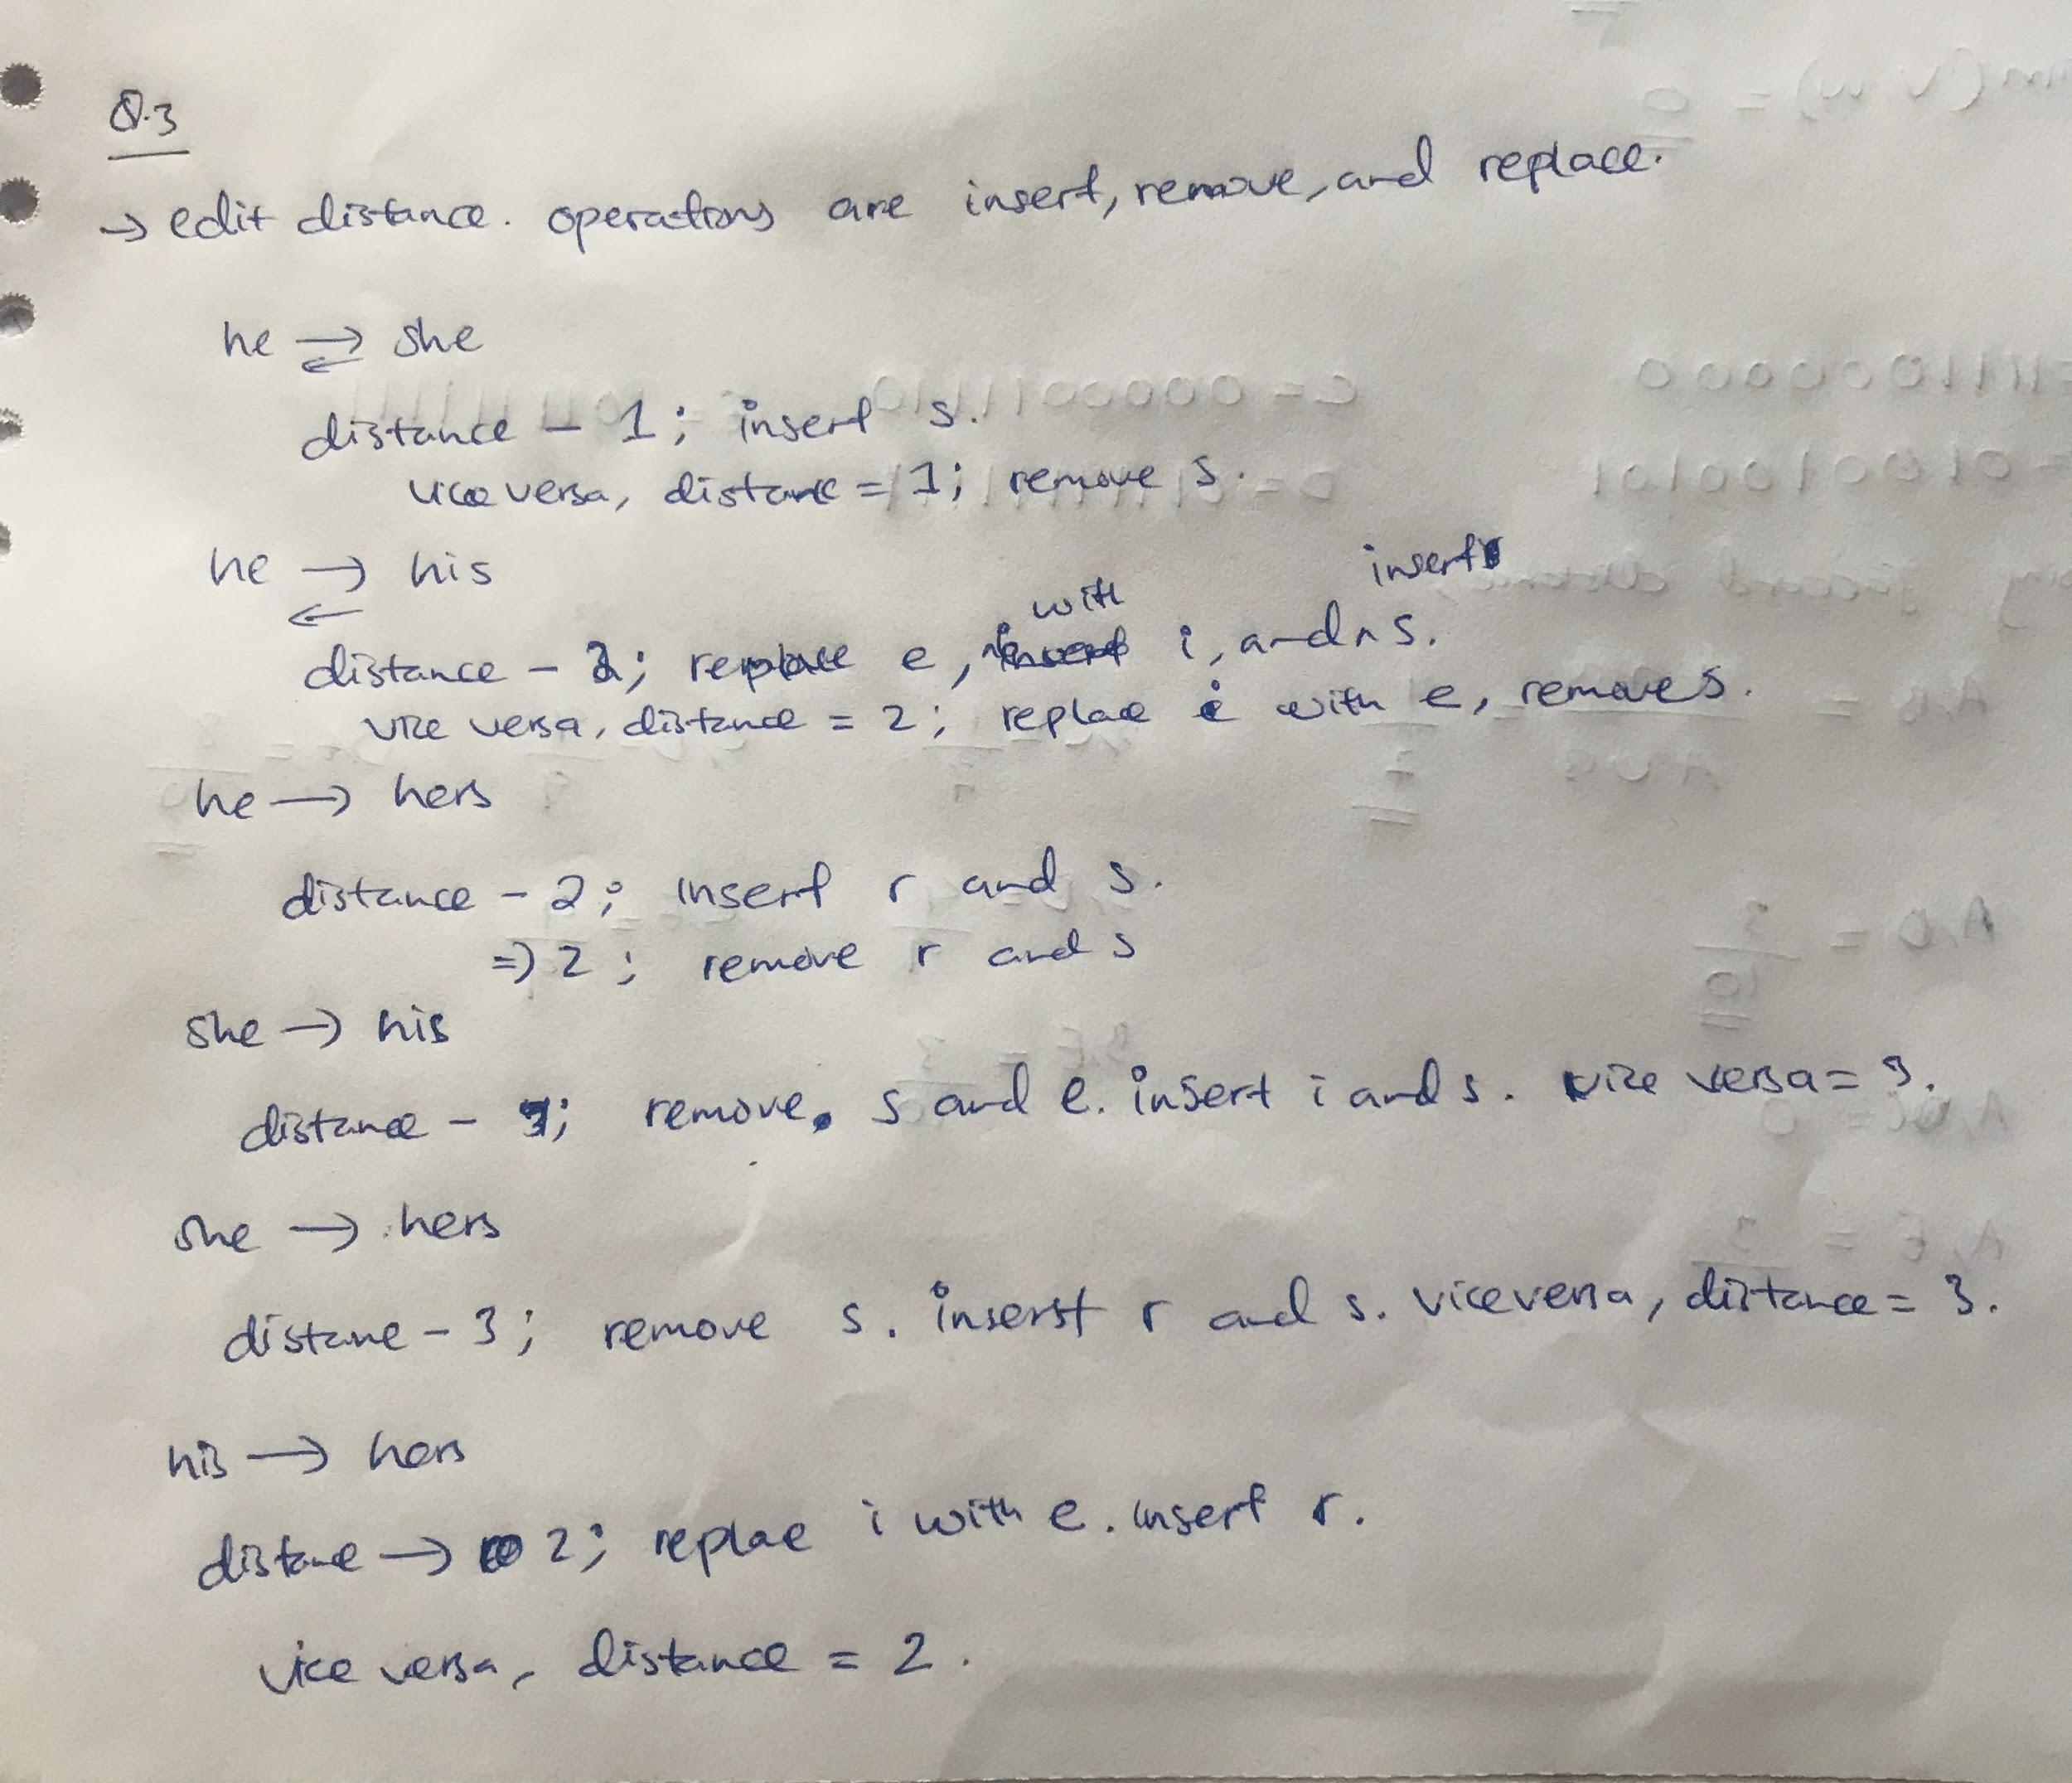 Q.3
→ edit distance. operations are insert, remove, and replace.
he ⇄ she
distance - 1; insert s.
vice versa, distance = 1; remove s.
he → his
←
with insert
distance - 2; replace e, i, and ^ s.
vice versa, distance = 2; replace i with e, remove s.
he → hers
distance - 2; insert r and s.
=> 2; remove r and s
she → his
distance - 3; remove s and e. insert i and s. vice versa = 3.
she → hers
distane - 3; remove s. inserst r and s. vice versa, distance = 3.
his → hers
distane → 2; replae i with e. insert r.
vice versa, distance = 2.